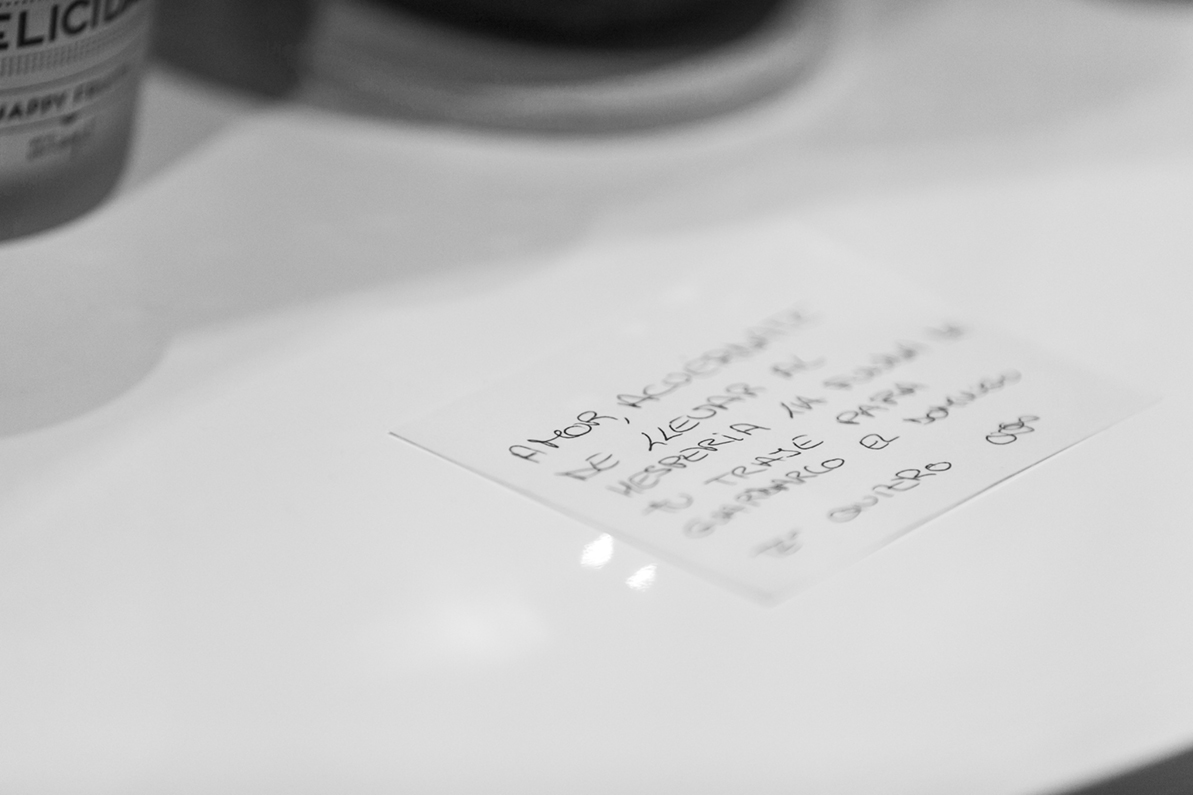 ELICIDA
HAPPY
AMOR, ACUÉRDATE
DE LLEVAR AL
HESPERIA LA FUNDA DE
TU TRAJE PARA
GUARDARLO EL DOMINGO
TE QUIERO